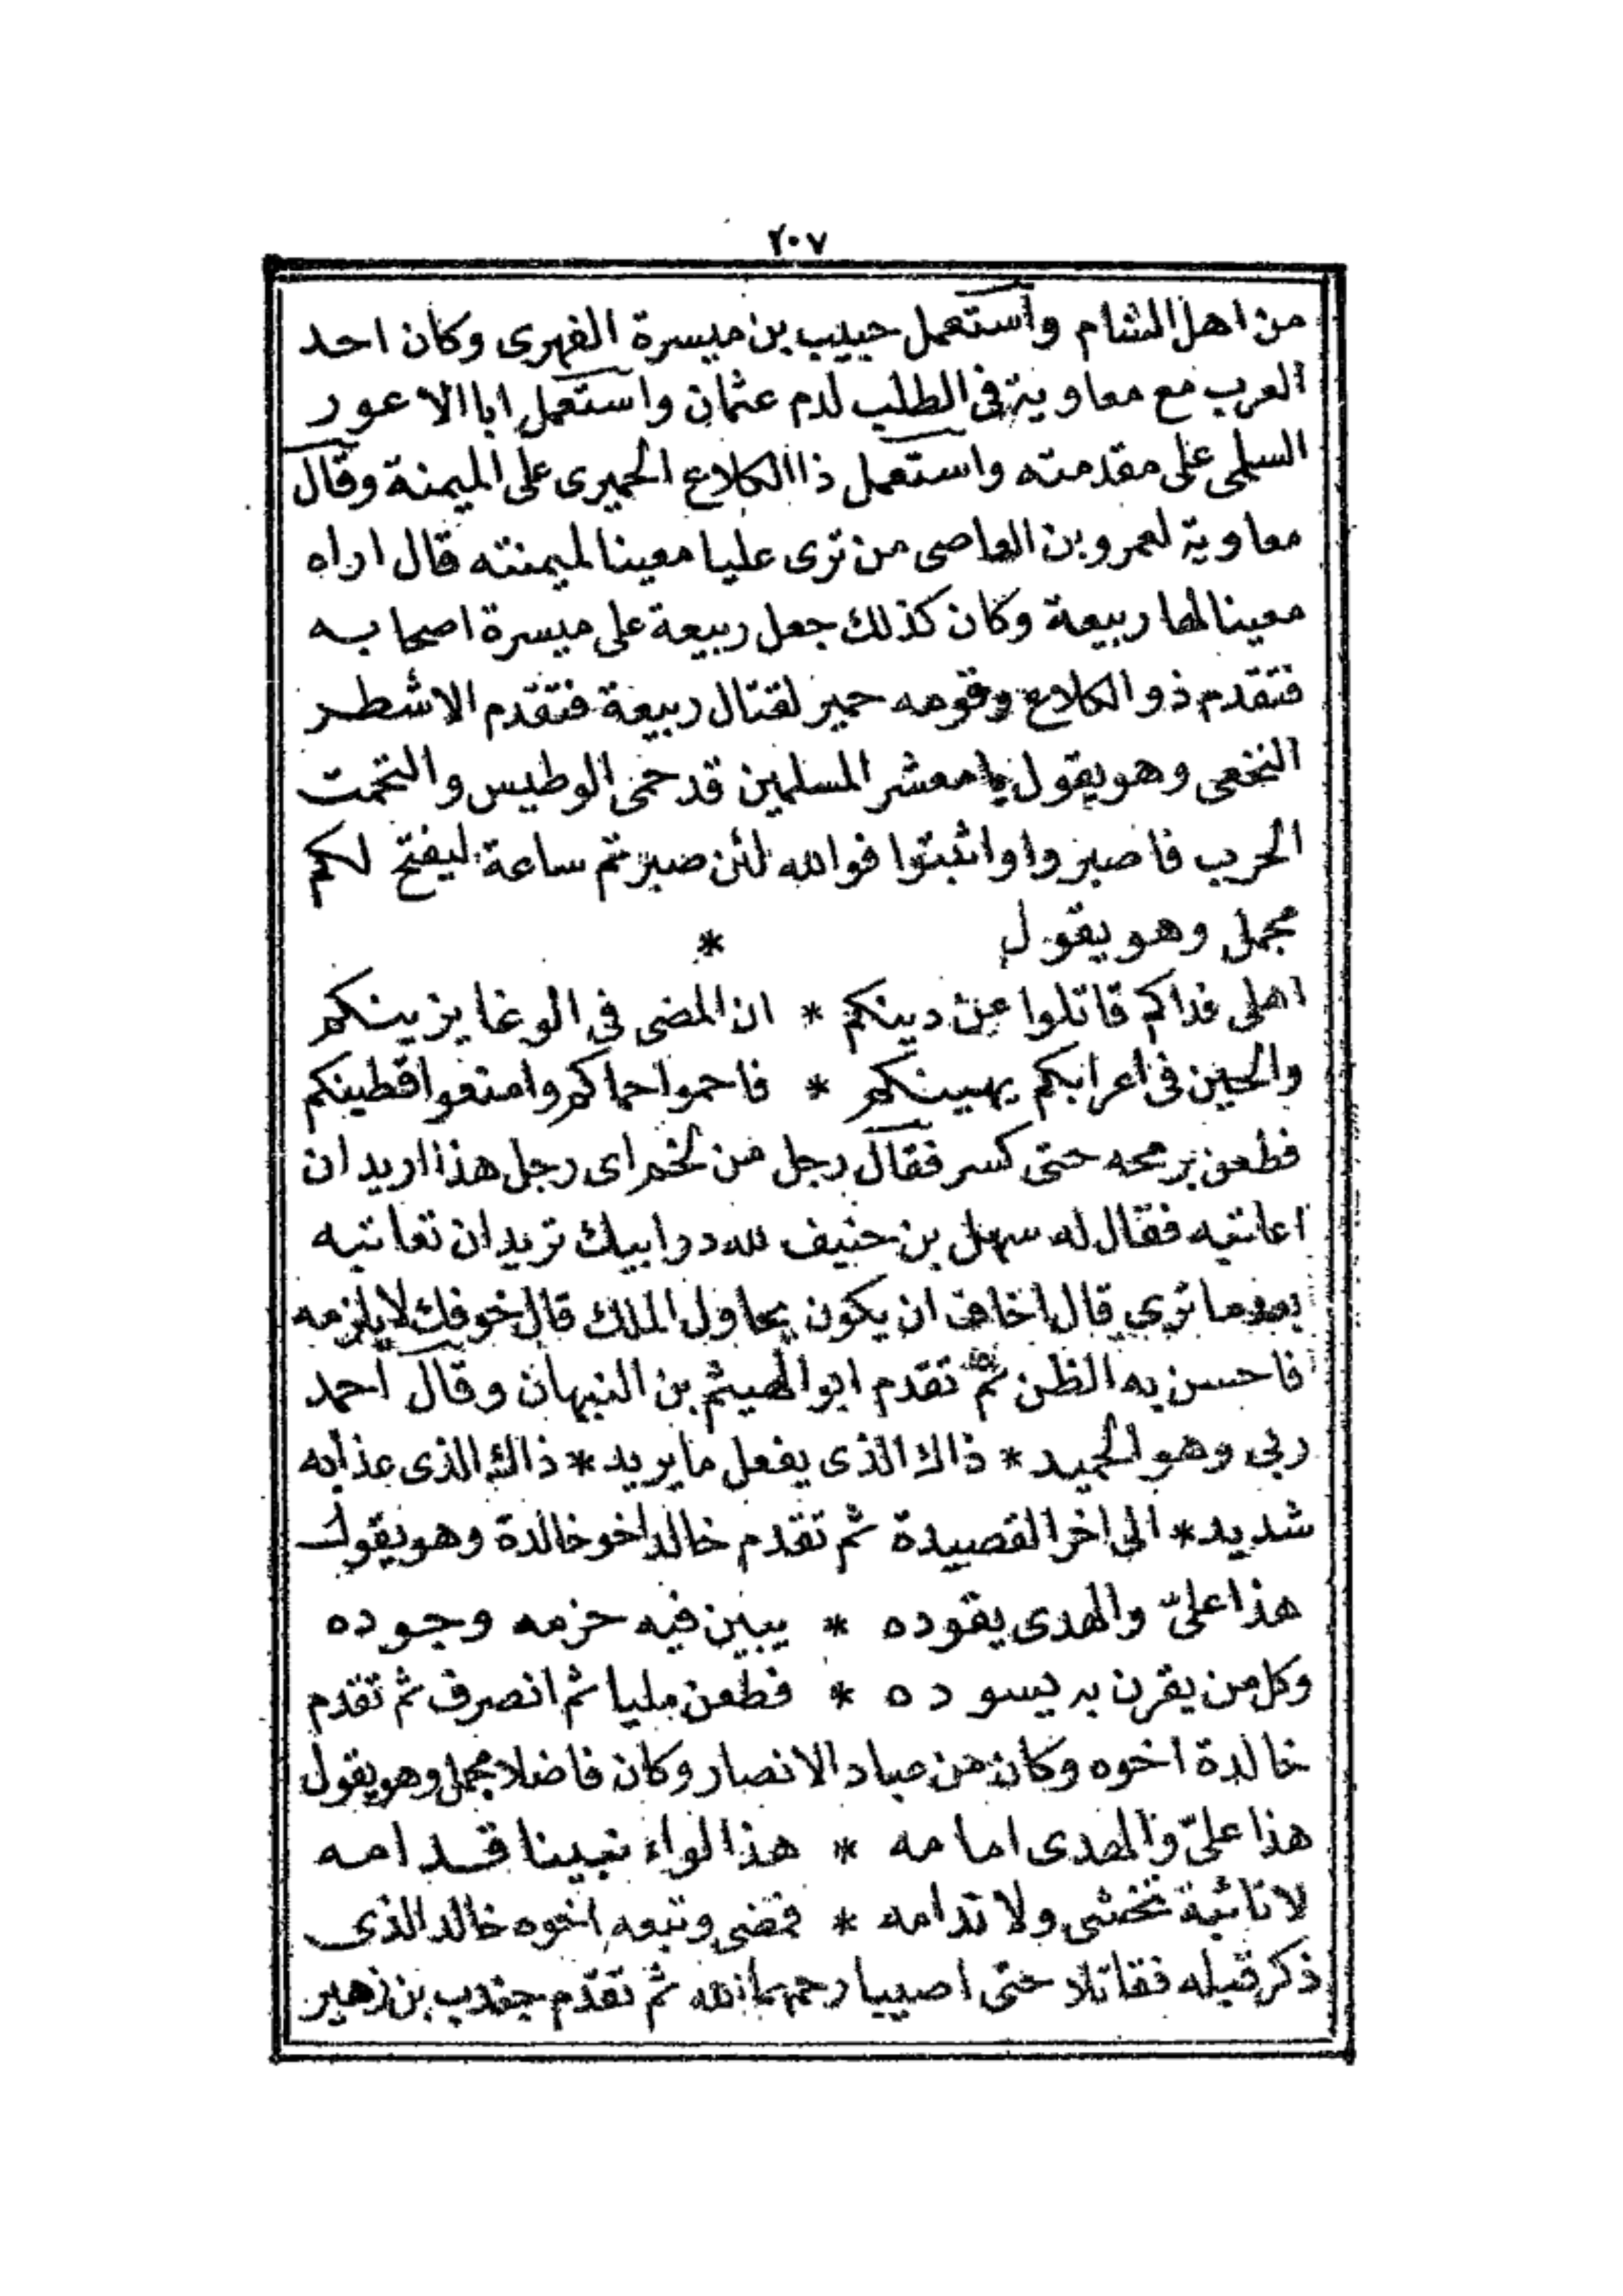 ٢٠٧
من اهل الشام واستعمل حبيب بن ميسرة الفهرى وكان احد
العرب مع معاوية فى الطلب لدم عثمان واستعمل ابا الاعور
السلمى على مقدمته واستعمل ذا الكلاع الحميرى على الميمنة وقال
معاوية لعمرو بن العاصى من ترى عليا معينا لميمنته قال اراه
معينا لها ربيعة وكان كذلك جعل ربيعة على ميسرة اصحابه
فتقدم ذو الكلاع وقومه حمير لقتال ربيعة فتقدم الاشطر
النخعى وهو يقول يا معشر المسلمين قد حمى الوطيس والتحمت
الحرب فاصبروا واثبتوا فوالله لئن صبرتم ساعة ليفتح لكم
مجمل وهو يقول *
اهلى فداكم قاتلوا عن دينكم * ان المضى فى الوغا يزينكم
والحين فى اعرابكم يهينكم * فاحموا حماكم وامنعوا قطينكم
فطعن برمحه حتى كسر فقال رجل من لخم اى رجل هذا اريد ان
اعاتبه فقال له سهل بن حنيف لله در ابيك تريد ان تعاتبه
بعد ما ترى قال اخاف ان يكون يحاول الملك قال خوفك لا يلزمه
فاحسن به الظن ثم تقدم ابو الهيثم بن النبهان وقال احمد
ربى وهو الحميد * ذاك الذى يفعل ما يريد * ذاك الذى عذابه
شديد * الى اخر القصيدة ثم تقدم خالد اخو خالدة وهو يقول
هذا علىّ والهدى يقوده * يبين فيه حزمه وجوده
وكل من يقرن به يسوده * فطعن مليا ثم انصرف ثم تقدم
خالدة اخوه وكان من عباد الانصار وكان فاضلا مجمل وهو يقول
هذا علىّ والهدى امامه * هذا لواء نبينا قدامه
لا نائبة تخشى ولا ندامه * فمضى وتبعه اخوه خالد الذى
ذكر قبله فقاتلا حتى اصيبا رحمهما الله ثم تقدّم جندب بن زهير